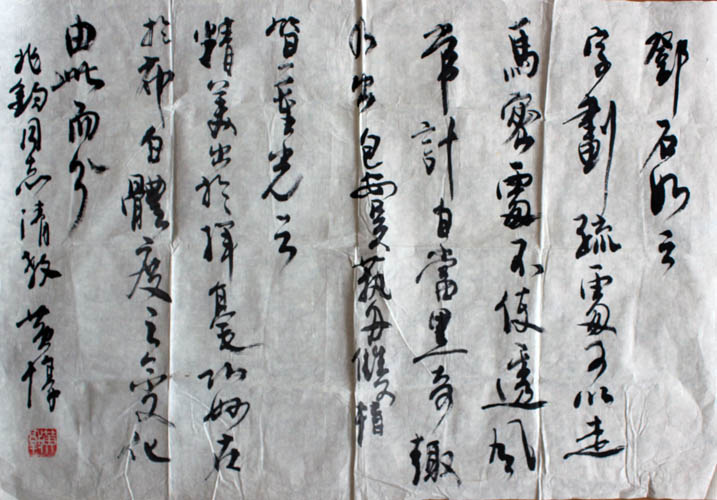 鄧石如云
字劃疏處可以走
馬密處不使透風
常計白當黑奇趣
乃出 包安吳藝舟雙楫
笪重光云
精美出於揮毫巧妙在
於布白體度之變化
由此而分
兆鈞同志清教 黃惇